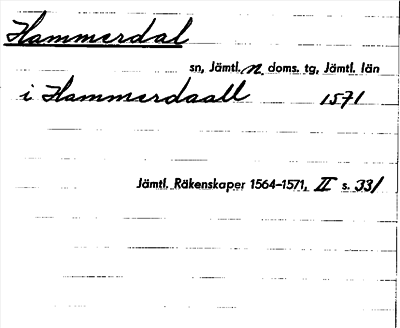 Hammerdal
sn, Jämtl. n. doms. tg, Jämtl. län
i Hammerdaall 1571
Jämtl. Räkenskaper 1564–1571, II s. 331